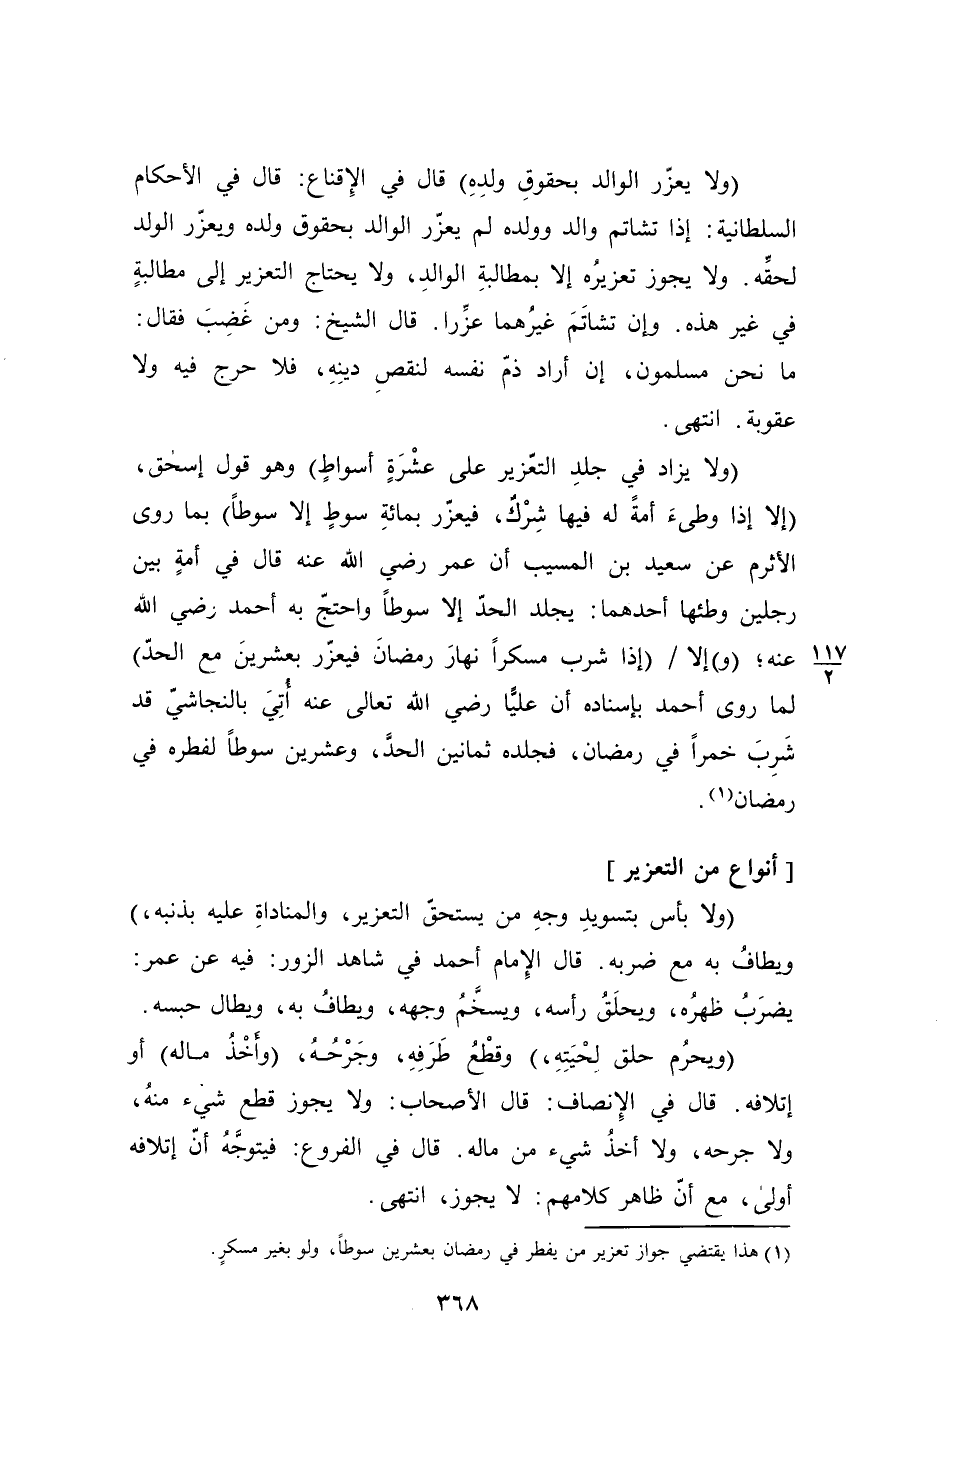 (ولا يعزّر الوالد بحقوقِ ولدِهِ) قال في الإقناع: قال في الأحكام
السلطانية: إذا تشاتم والد وولده لم يعزّر الوالد بحقوق ولده ويعزّر الولد
لحقِّه. ولا يجوز تعزيرُه إلا بمطالبةِ الوالدِ، ولا يحتاج التعزير إلى مطالبةٍ
في غير هذه. وإن تشاتَمَ غيرُهما عزِّرا. قال الشيخ: ومن غَضِبَ فقال:
ما نحن مسلمون، إن أراد ذمّ نفسه لنقصِ دينِهِ، فلا حرج فيه ولا
عقوبة. انتهى.
(ولا يزاد في جلدِ التعّزير على عشْرَةٍ أسواطٍ) وهو قول إسحٰق،
(إلا إذا وطىءَ أمةً له فيها شِرْكٌ، فيعزّر بمائةِ سوطٍ إلا سوطاً) بما روى
الأثرم عن سعيد بن المسيب أن عمر رضي الله عنه قال في أمةٍ بين
رجلين وطئها أحدهما: يجلد الحدّ إلا سوطاً واحتجّ به أحمد رضي الله
عنه؛ (و)إلا / (إذا شرب مسكراً نهارَ رمضانَ فيعزّر بعشرينَ مع الحدّ) ١١٧/٢
لما روى أحمد بإسناده أن عليًّا رضي الله تعالى عنه أُتِيَ بالنجاشيّ قد
شَرِبَ خمراً في رمضان، فجلده ثمانين الحدَّ، وعشرين سوطاً لفطره في
رمضان(١).
[أنواع من التعزير]
(ولا بأس بتسويدِ وجهِ من يستحقّ التعزير، والمناداةِ عليه بذنبه،)
ويطافُ به مع ضربه. قال الإمام أحمد في شاهد الزور: فيه عن عمر:
يضرَبُ ظهرُه، ويحلَقُ رأسه، ويسخَّمُ وجهه، ويطافُ به، ويطال حبسه.
(ويحرُم حلق لِحْيَتِهِ،) وقطْعُ طَرَفِهِ، وجَرْحُهُ، (وأَخْذُ ماله) أو
إتلافه. قال في الإنصاف: قال الأصحاب: ولا يجوز قطع شيء منهُ،
ولا جرحه، ولا أخذُ شيء من ماله. قال في الفروع: فيتوجَّهُ أنّ إتلافه
أولىٰ، مع أنّ ظاهر كلامهم: لا يجوز، انتهى.
(١) هذا يقتضي جواز تعزير من يفطر في رمضان بعشرين سوطاً، ولو بغير مسكرٍ.
٣٦٨